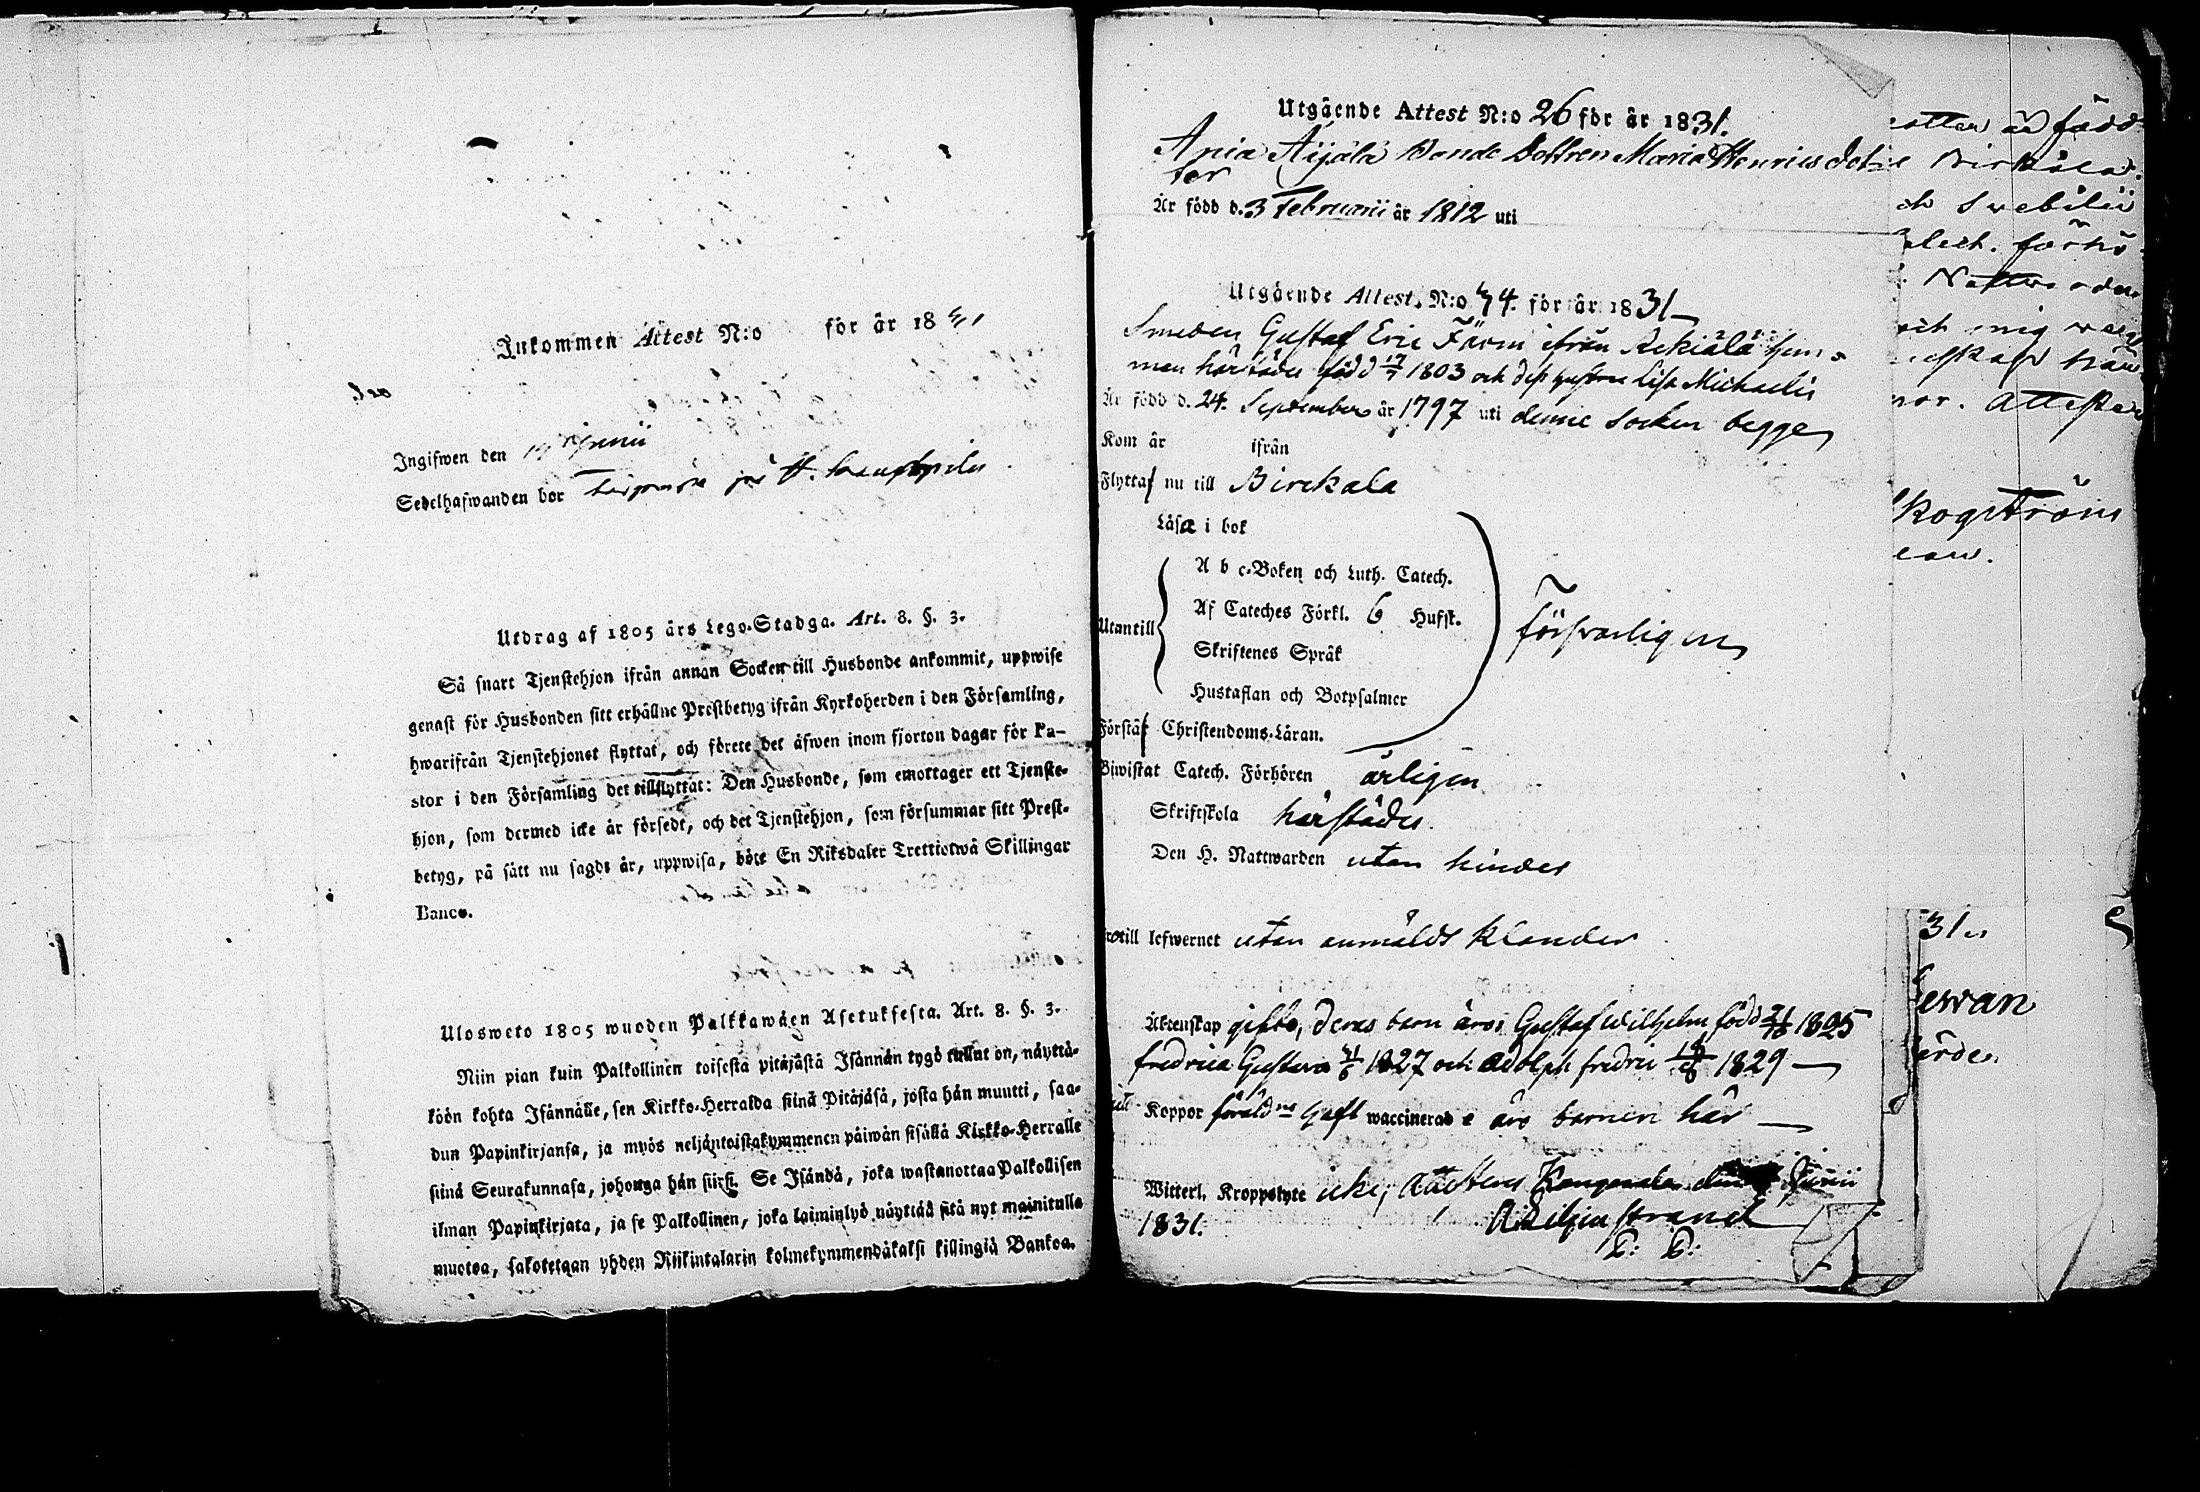 Inkommen Attest N:o för år 18
Ingifwen den Junii
Sedelhafwanden bor
Utdrag af 1805 års Lego-Stadga. Art. 8. §. 3.
Så snart Tjenstehjon ifrån annan Socken till Husbonde ankommit, uppwise
genast för Husbonden sitt erhållne Prestbetyg ifrån Kyrkoherden i den Församling,
hwarifrån Tjenstehjonet flyttat, och förete det äfwen inom fjorton dagar för Pa-
stor i den Församling det tillflyttat: Den Husbonde, som emottager ett Tjenste-
hjon, som dermed icke är försedt, och det Tjenstehjon, som försummar sitt Prest-
betyg, på sätt nu sagdt är, uppwisa, böte En Riksdaler Trettiotwå Skillingar
Banco.
Ulosweto 1805 wuoden Palkkawäen Asetuksesta. Art. 8. §. 3.
Niin pian kuin Palkollinen toisesta pitäjästä Isännän tygö tullut on, näyttä-
köön kohta Isännälle, sen Kirkko-Herralda siinä Pitäjäsä, josta hän muutti, saa-
dun Papinkirjansa, ja myös neljäntoistakymmenen päiwän sisällä Kirkko-Herralle
siinä Seurakunnasa, johonga hän siirsi. Se Isändä, joka wastanottaa Palkollisen
ilman Papinkirjata, ja se Palkollinen, joka laiminlyö näyttää sitä nyt mainitulla
muotoa, sakotetaan yhden Riikintalarin kolmekymmendäkaksi killingiä Bankoa.
Utgående Attest N:o 26 för år 1831.
Äijälä Bonde Dottren Maria Henricsdot-
ter
Är född d. 3 Februarii år 1812 uti
Utgående Attest. N:o 74. för år 1831
Smeden Gustaf Eric Färm ifrån Rekiälä hem-
man härstädes född 17/7 1803 och dess hustru Lisa Michaelis
Är född d. 24. September år 1797 uti denne Socken begge
Kom år ifrån
Flytta nu till Birckala
Läsa i bok
A b c-Boken och Luth. Catech.
Af Cateches Förkl. 6 Hufst.
Utantill
försvarligen
Skriftenes Språk
Hustaflan och Botpsalmer
Förstå Christendoms-Läran.
Biwistat Catech. Förhören årligen
Skriftskola härstädes.
Den H. Nattwarden utan hinder
till lefwernet utan anmäldt klander
Äktenskap gifte, deras barn äro: Gustaf Wilhelm född 1825
Fredrica Gustava 1827 och Adolph Fredric 1829
Koppor föräldne haft waccinerade äro barnen här
Witterl. Kroppslyte icke, Attesteras Kangasala den Junii
1831. A Liljestrand
född
Birkala
Swebilii
förhö
mig
Attester
kogström
31
ewan